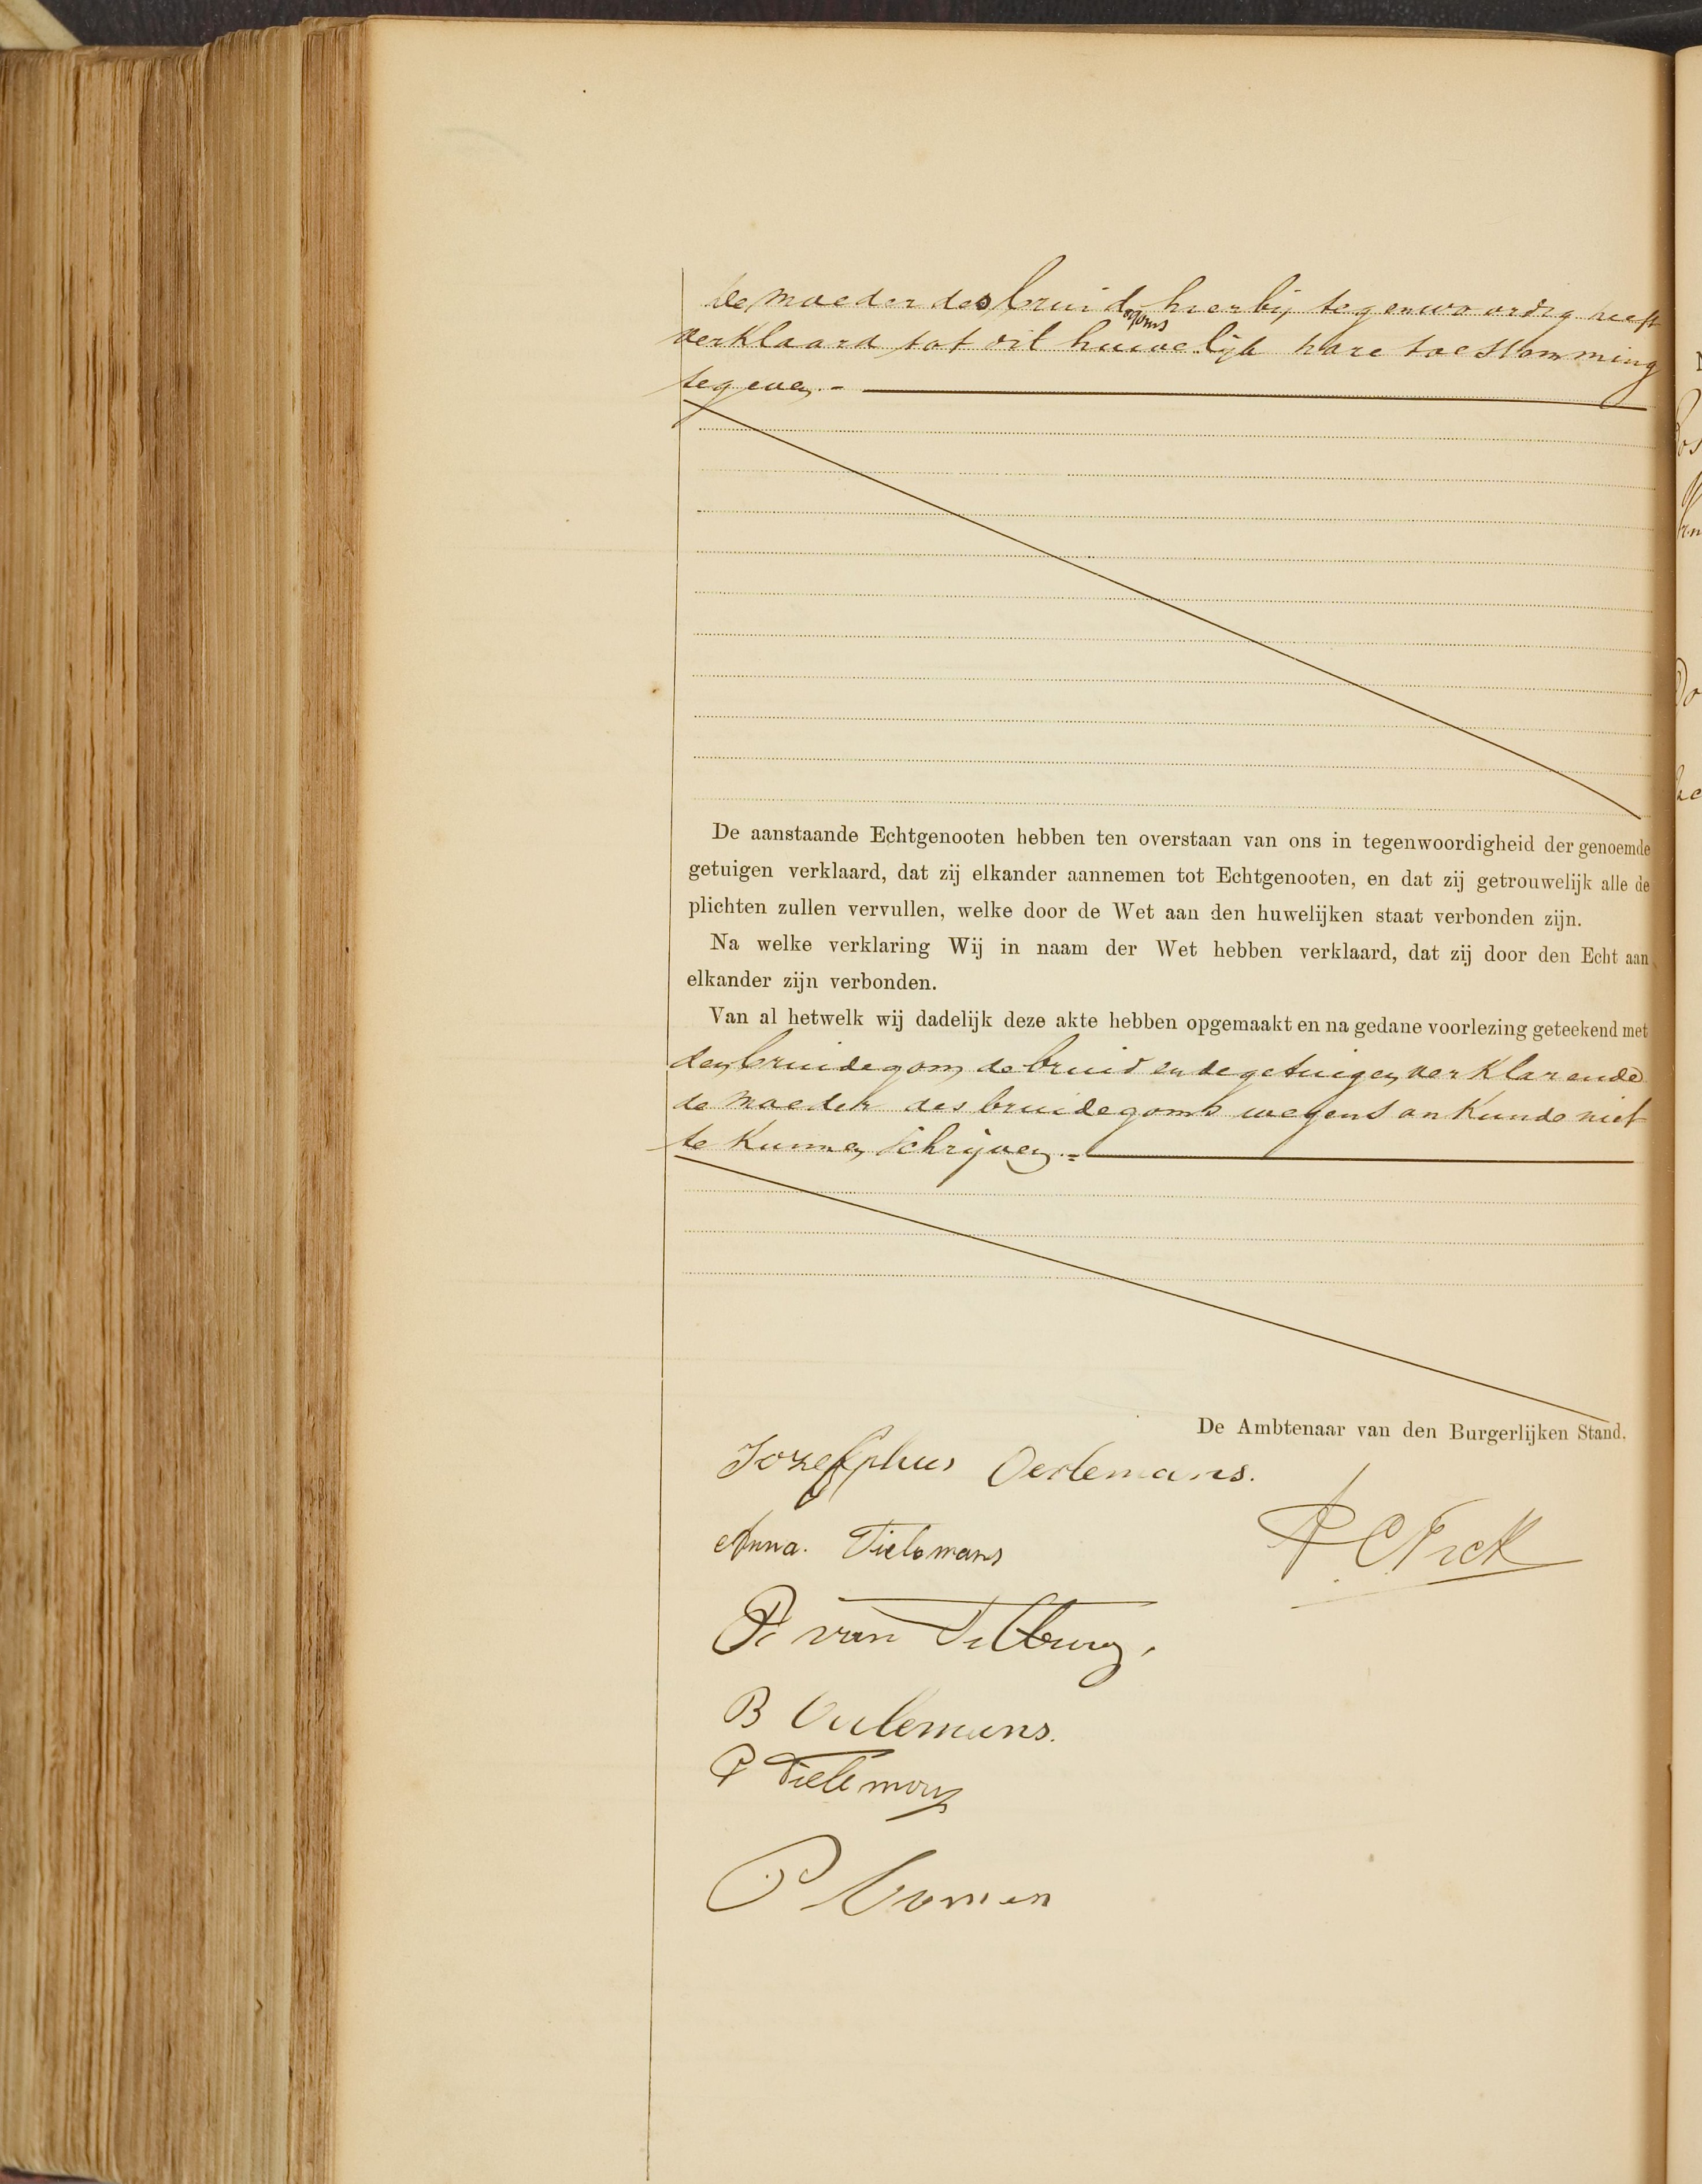 De moeder des bruidegoms hierbij tegenwoordig heeft
verklaard tot dit huwelijk hare toestemming
te geven.
De aanstaande Echtgenooten hebben ten overstaan van ons in tegenwoordigheid der genoemde
getuigen verklaard, dat zij elkander aannemen tot Echtgenooten, en dat zij getrouwelijk alle de
plichten zullen vervullen, welke door de Wet aan den huwelijken staat verbonden zijn.
Na welke verklaring Wij in naam der Wet hebben verklaard, dat zij door den Echt aan
elkander zijn verbonden.
Van al hetwelk wij dadelijk deze akte hebben opgemaakt en na gedane voorlezing geteekend met
den bruidegom, de bruid en de getuigen, verklarende
de moeder des bruidegoms wegens onkunde niet
te kunnen schrijven.
De Ambtenaar van den Burgerlijken Stand.
Jozefphus Oerlemans.
Anna. Tielemans
P. van Tilburg,
B Oerlemans.
P Tielemans
P